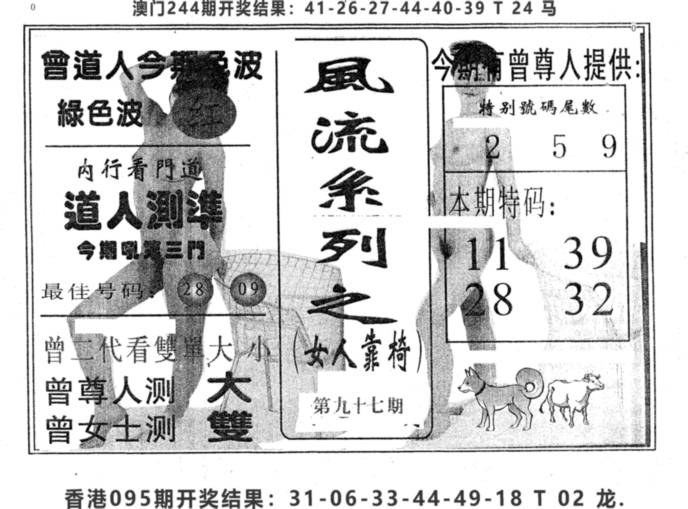 澳门244期开奖结果：41-26-27-44-40-39 T 24 马
曾道人今期色波
綠色波 红
内行看門道
道人測準
今期吼第三門
最佳号码： 28 09
曾二代看雙單大小
曾尊人测 大
曾女士测 雙
風流系列之
（女人靠椅）
第九十七期
今期有曾尊人提供：
特别號碼尾數
2 5 9
本期特码：
11 39
28 32
香港095期开奖结果：31-06-33-44-49-18 T 02 龙.